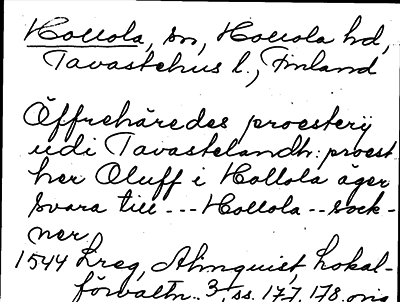 Hollola, sn, Hollola hd,
Tavastehus l., Finland
Öffrehäredes proesterij
udi Tavastelandh: proest
her Oluff i Hollola äger
svara till --- Hollola -- sock-
ner
1544 Lreg, Almquist, Lokal-
förvaltn. 3, ss. 177, 178, orig